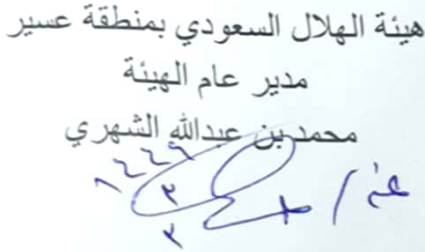 هيئة الهلال السعودي بمنطقة عسير
مدير عام الهيئة
محمد بن عبدالله الشهري
عنه /